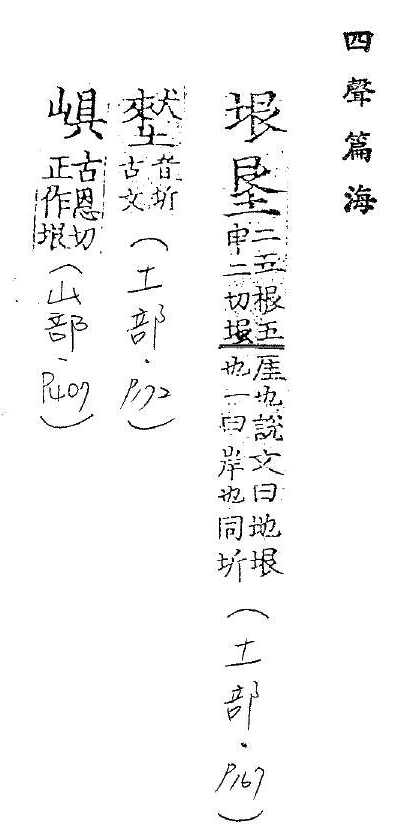 四聲篇海
垠垦
二五根五
申二切垠
厓也說文曰地垠
也一曰岸也同圻
(土部.P167)
音圻
古文
(土部.P172)
古恩切
正作垠
(山部.P407)